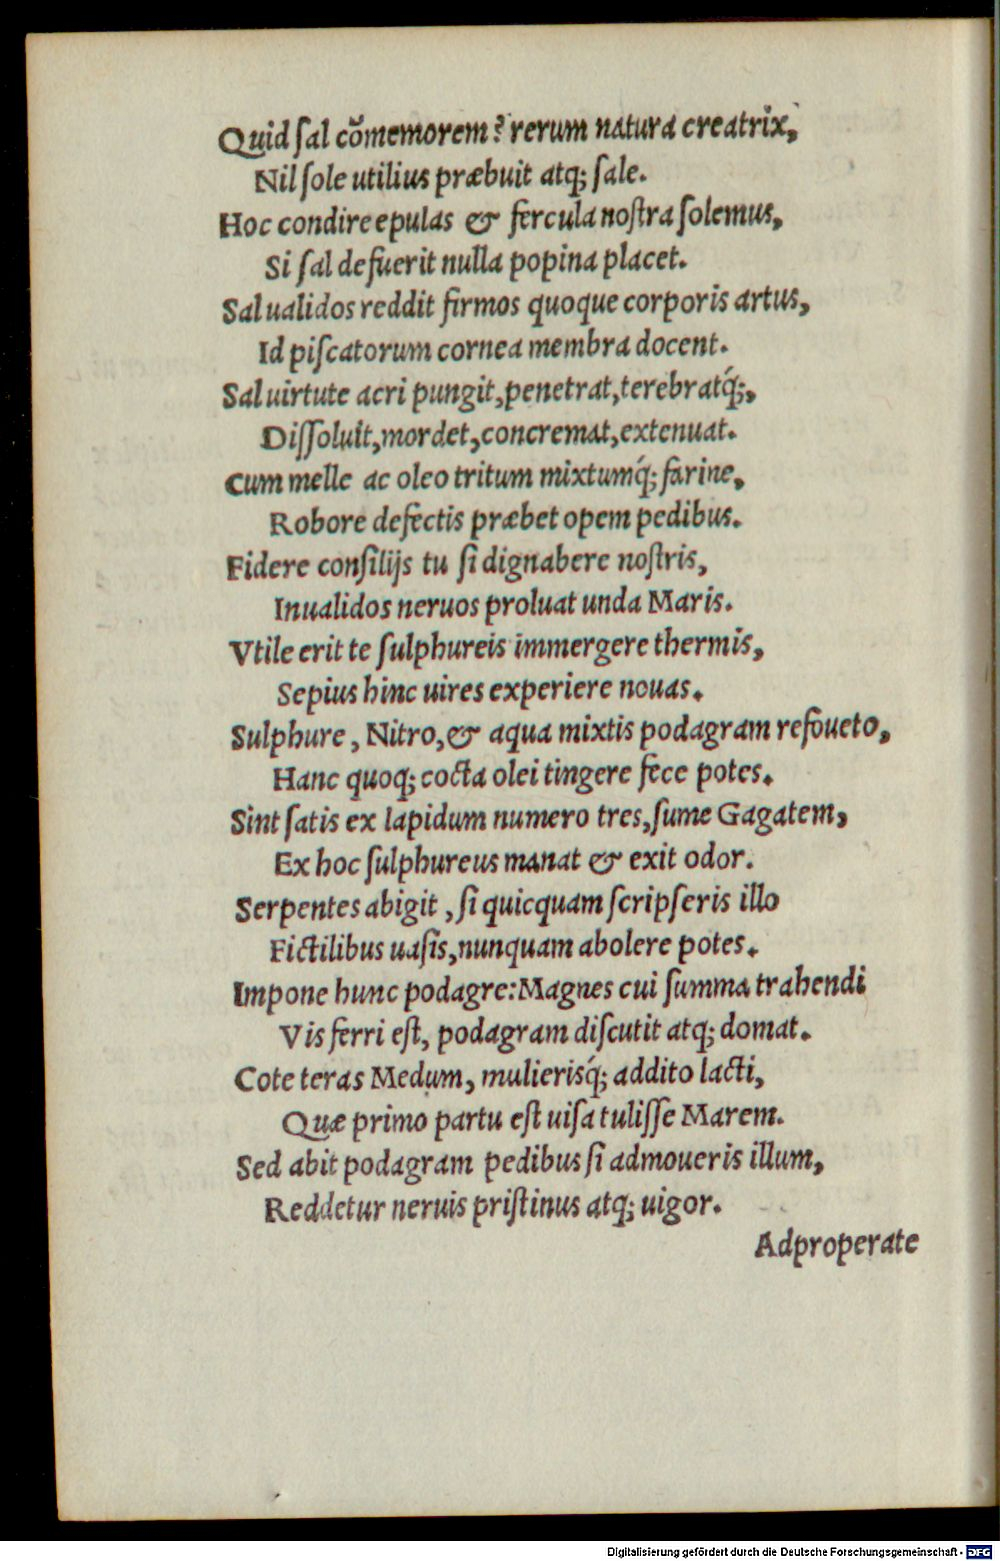 Quid ſal cõmemorem? rerum natura creatrix,
Nil ſole utilius præbuit atq; ſale.
Hoc condire epulas & fercula noſtra ſolemus,
Si ſal defuerit nulla popina placet.
Sal ualidos reddit firmos quoque corporis artus,
Id piſcatorum cornea membra docent.
Sal uirtute acri pungit, penetrat, terebratq́;,
Diſſoluit, mordet, concremat, extenuat.
Cum melle ac oleo tritum mixtumq́; farine,
Robore defectis præbet opem pedibus.
Fidere conſilijs tu ſi dignabere noſtris,
Inualidos neruos proluat unda Maris.
Vtile erit te ſulphureis immergere thermis,
Sepius hinc uires experiere nouas.
Sulphure, Nitro, & aqua mixtis podagram refoueto,
Hanc quoq; cocta olei tingere fece potes.
Sint ſatis ex lapidum numero tres, ſume Gagatem,
Ex hoc ſulphureus manat & exit odor.
Serpentes abigit, ſi quicquam ſcripſeris illo
Fictilibus uaſis, nunquam abolere potes.
Impone hunc podagre: Magnes cui ſumma trahendi
Vis ferri eſt, podagram diſcutit atq; domat.
Cote teras Medum, mulierisq́; addito lacti,
Quæ primo partu eſt uiſa tuliſſe Marem.
Sed abit podagram pedibus ſi admoueris illum,
Reddetur neruis priſtinus atq; uigor.
Adproperate
Digitalisierung gefördert durch die Deutsche Forschungsgemeinschaft - DFG